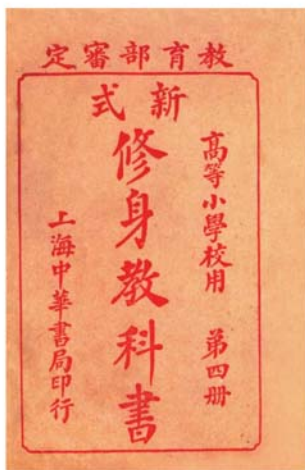 教育部審定
高等小學校用　第四册
新式
修身教科書
上海中華書局印行